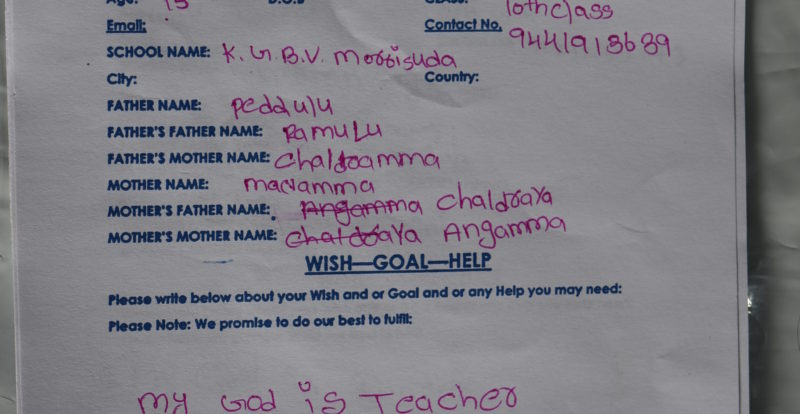 Age: 15 D.O.B CLASS: 10th class
Email: Contact No. 9441913639
SCHOOL NAME: K.G.B.V. Morrisuda
City: Country:
FATHER NAME: Peddulu
FATHER'S FATHER NAME: RamuLu
FATHER'S MOTHER NAME:
MOTHER NAME:
MOTHER'S FATHER NAME: Angamma
MOTHER'S MOTHER NAME: Angamma
WISH—GOAL—HELP
Please write below about your Wish and or Goal and or any Help you may need:
Please Note: We promise to do our best to fulfil:
My God is Teacher